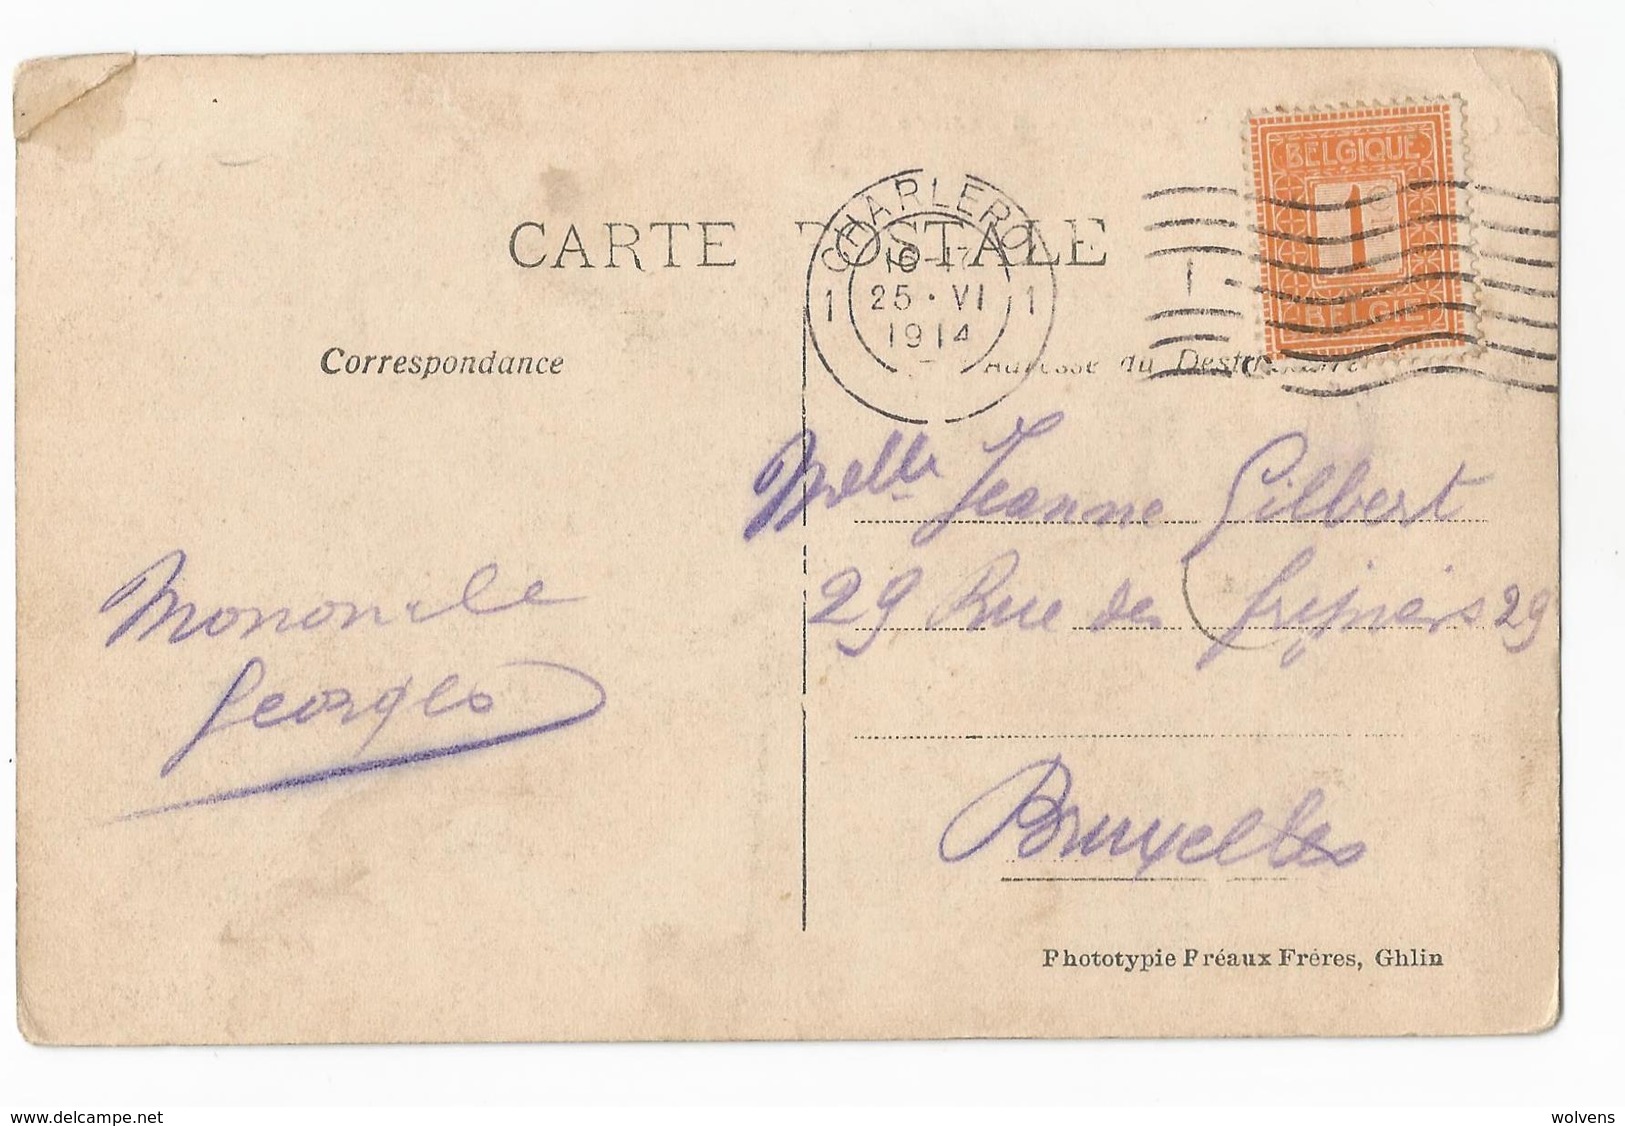 CARTE POSTALE
CHARLEROI
1 1
25 · VI
1914
BELGIQUE
1
BELGIË
Correspondance
Adresse du Destinataire
Melle Jeanne Gilbert
29 Rue des fripiers 29
Mononcle
Georges
Bruxelles
Phototypie Préaux Frères, Ghlin
www.delcampe.net
wolvens